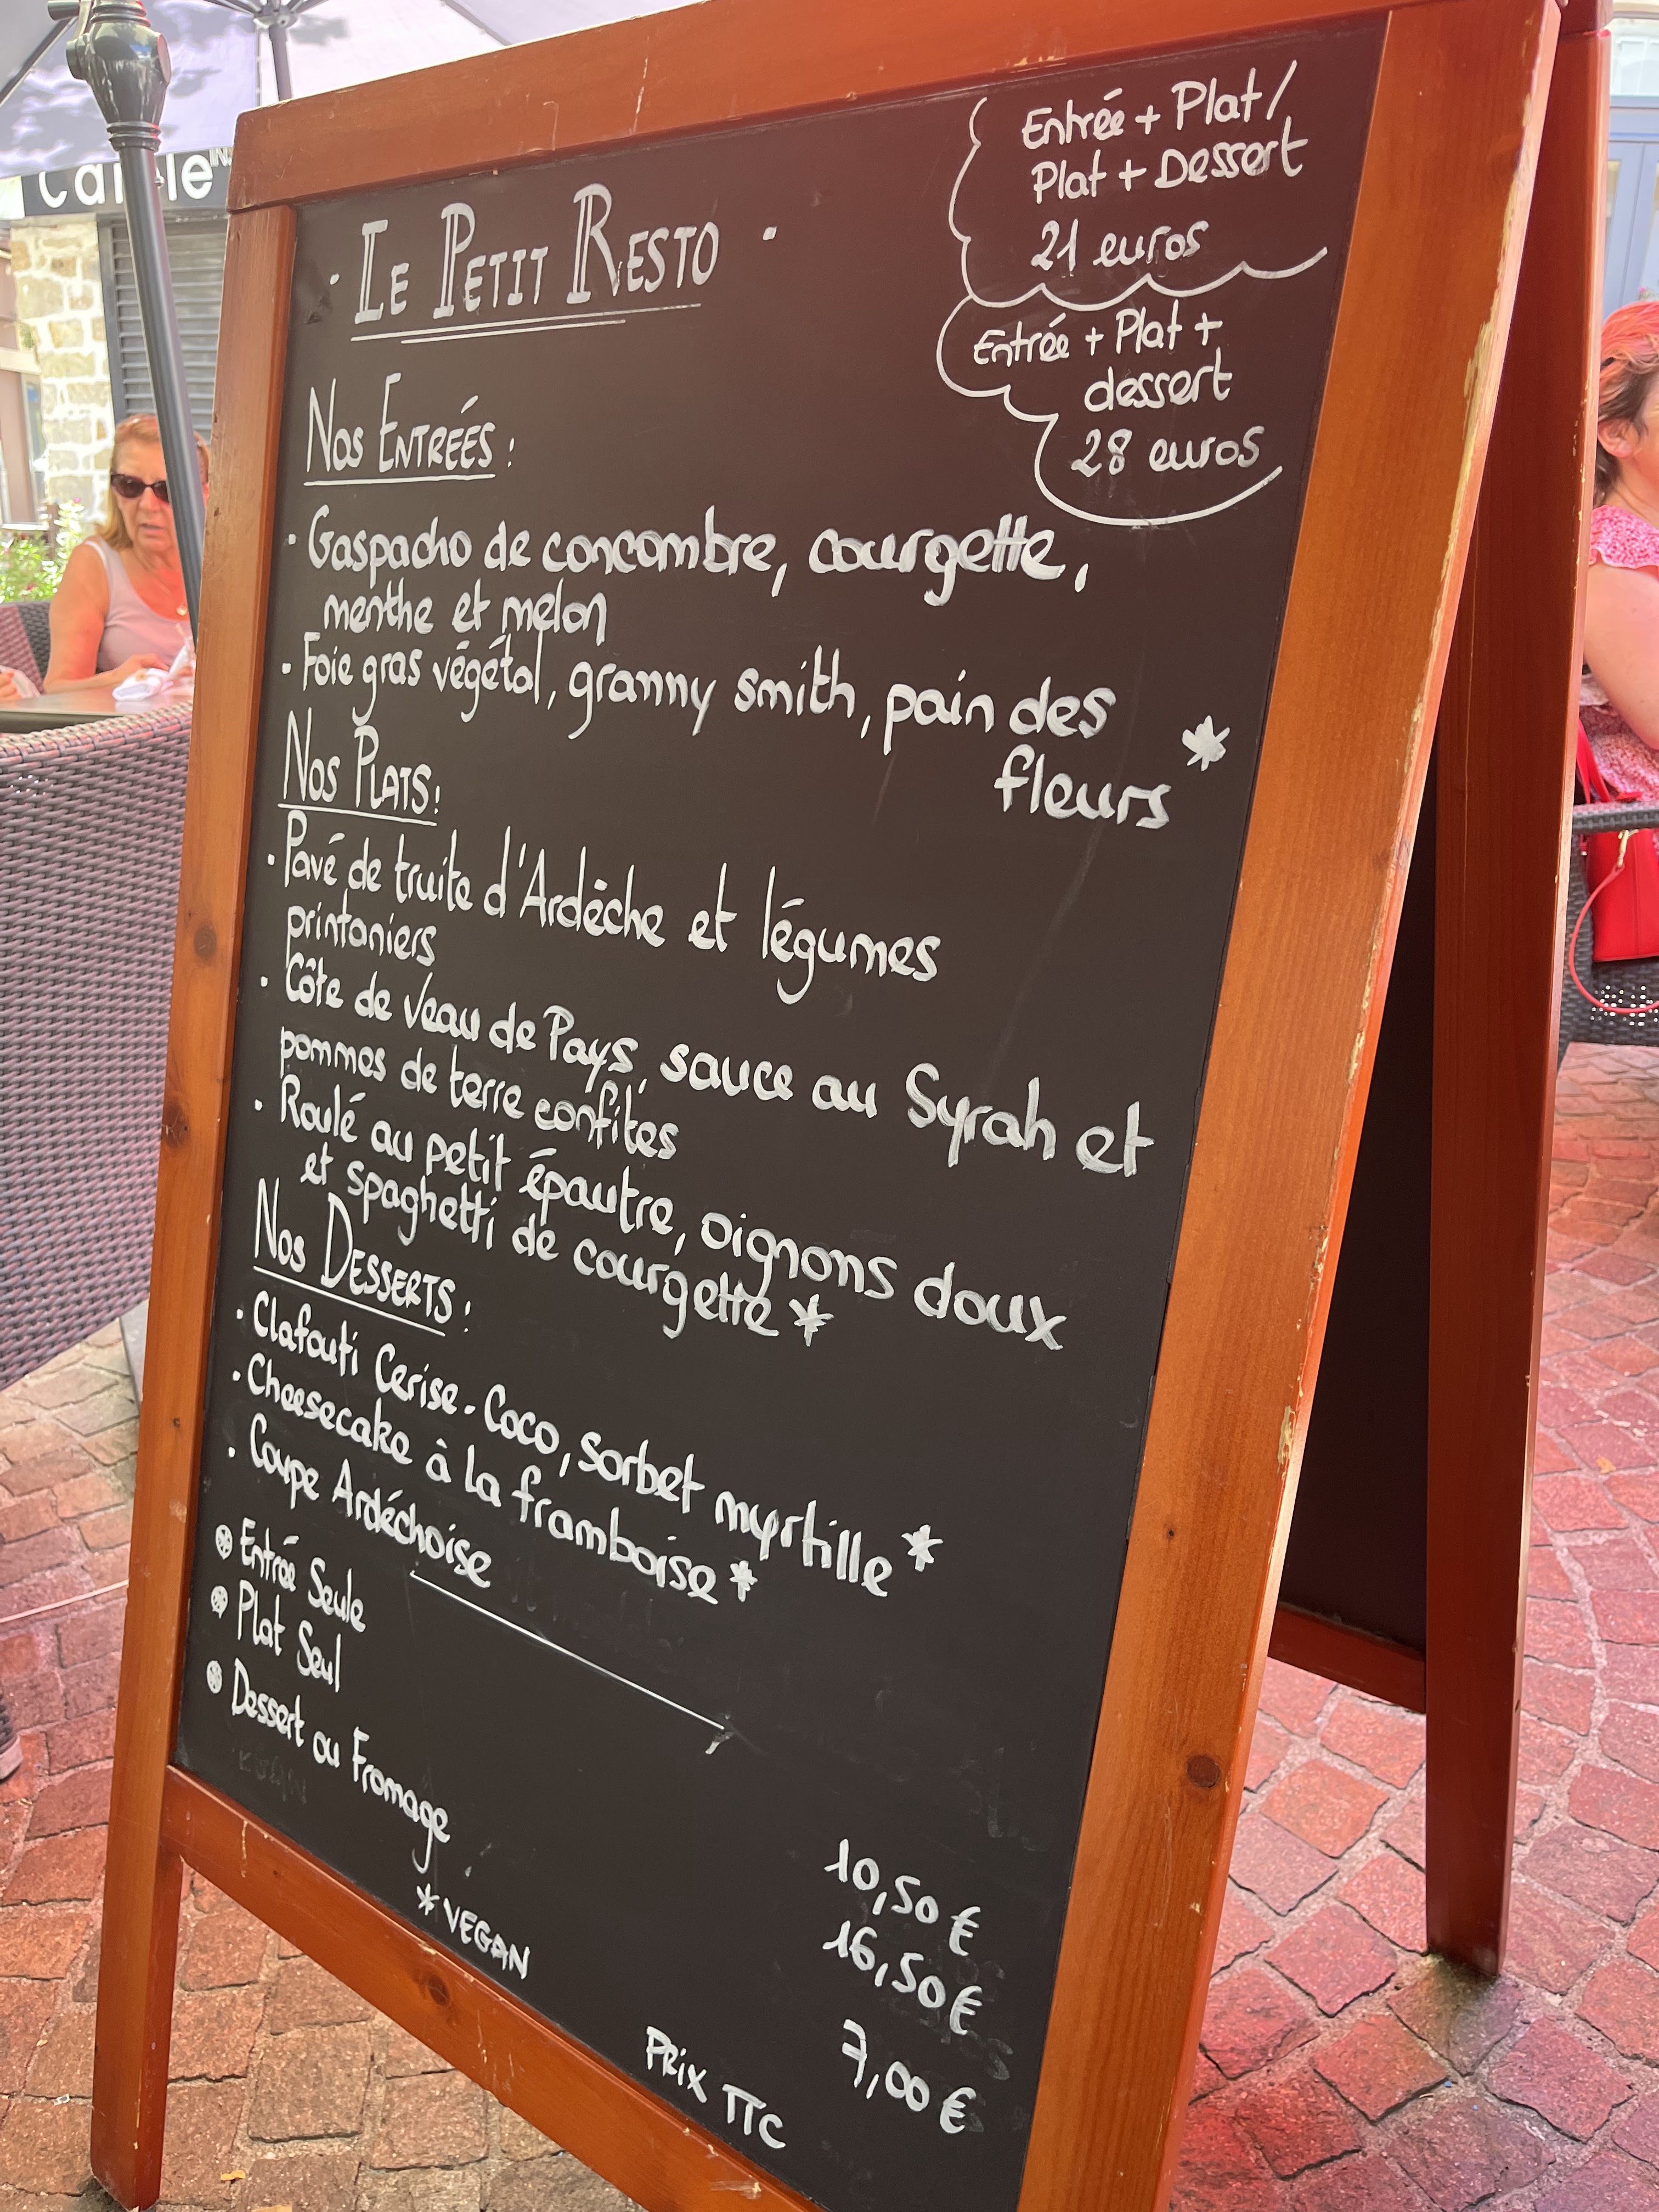 - LE PETIT RESTO -
Entrée + Plat /
Plat + Dessert
21 euros
Entrée + Plat +
dessert
28 euros
NOS ENTRÉES :
· Gaspacho de concombre, courgette,
menthe et melon
· Foie gras végétal, granny smith, pain des
fleurs *
NOS PLATS :
· Pavé de truite d'Ardèche et légumes
printaniers
· Côte de veau de Pays, sauce au Syrah et
pommes de terre confites
· Roulé au petit épautre, oignons doux
et spaghetti de courgette *
NOS DESSERTS :
· Clafouti Cerise-Coco, sorbet myrtille *
· Cheesecake à la framboise *
· Coupe Ardéchoise
Entrée Seule 10,50 €
Plat Seul 16,50 €
Dessert ou Fromage 7,00 €
* VEGAN
PRIX TTC